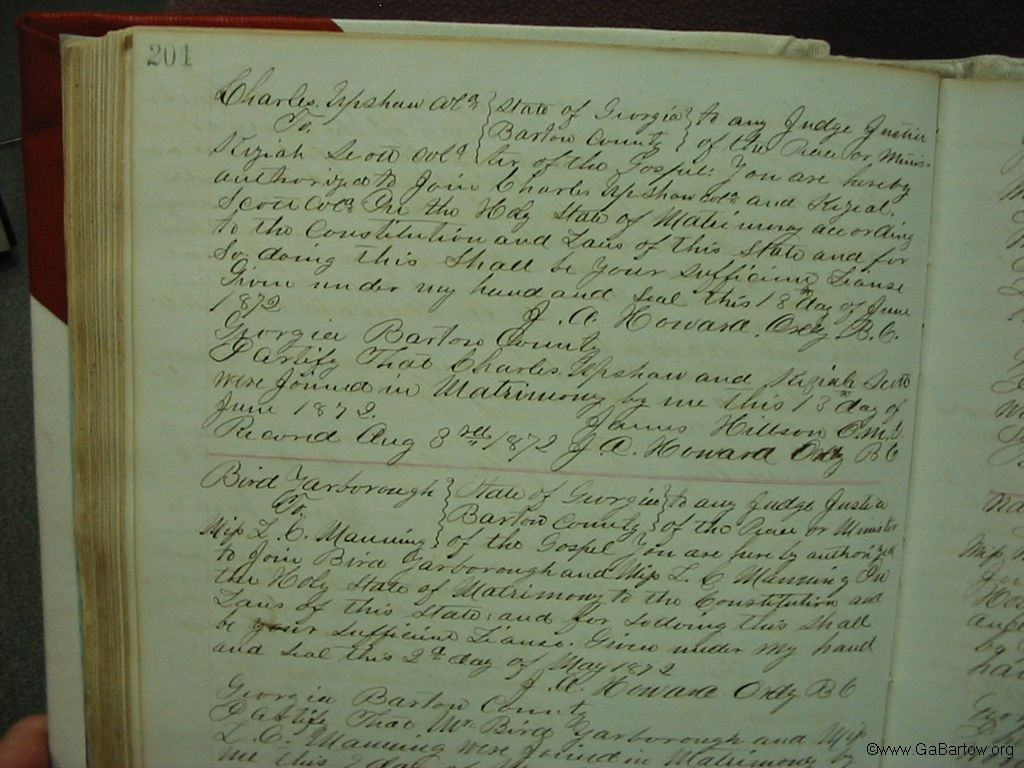 201
Charles Upshaw Cold } State of Georgia } to any Judge Justice
To } Bartow County } of the Peace or Minis-
Kiziah Scott Cold ter of the Gospel: You are hereby
authorized to Join Charles Upshaw Cold and Kiziah
Scott Cold In the Holy State of Matrimony according
to the Constitution and Laws of this State and for
So doing this Shall be your sufficient Lianse
Given under my hand and Seal this 13th day of June
1872 J. A. Howard Ordy B. C.
Georgia Bartow County
I Certify That Charles Upshaw and Kiziah Scott
were Joined in Matrimony by me this 13th day of
June 1872. James Hillson
Record Aug 3rd 1872 J A. Howard Ordy B C
Bird Yarborough } State of Georgia } to any Judge Justice
To } Bartow County } of the Peace or Minister
Miss L. C. Manning } of the Gospel You are hereby authorized
to Join Bird Yarborough and Miss L. C Manning In
the Holy State of Matrimony to the Constitution and
Laws of this State: and for So doing this Shall
be your Sufficient Lianse. Given under my hand
and Seal this 2d day of May 1872
J. A. Howard Ordy B C
Georgia Bartow County
I Certify That Mr. Bird Yarborough and Miss
L. C. Manning were Joined in Matrimony by
me this 2 day of
©www.GaBartow.org